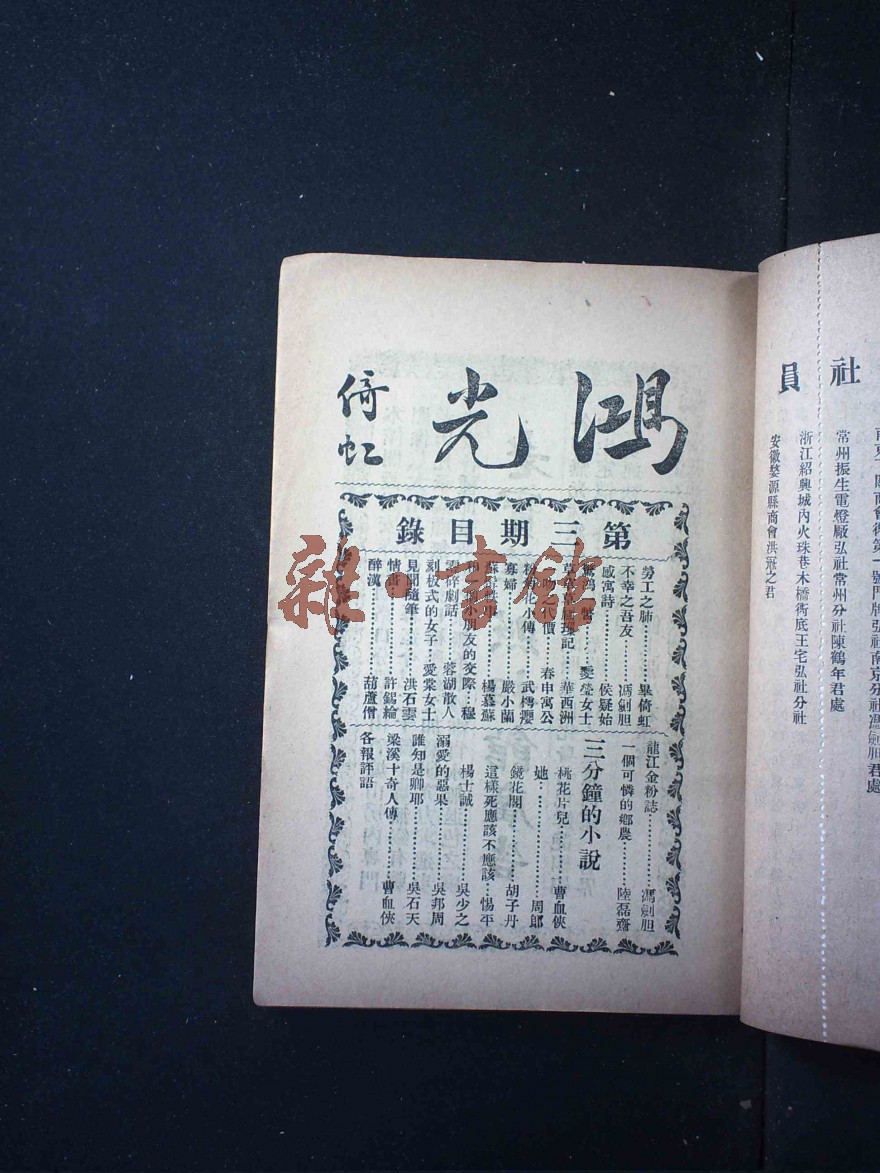 社員
常州振生電燈廠弘社常州分社陳鶴年君處
浙江紹興城內火珠巷木橋衖底王宅弘社分社
安徽婺源縣商會洪冠之君
鴻光
倚虹
第三期目錄
勞工之肺……畢倚虹
不幸之吾友……馮劍胆
感寓詩……侯疑始
愛棠女士
華西洲
之代價……春申寓公
小傳……武樗癭
寡婦……嚴小蘭
蘇……楊慕蘇
小朋友的交際…穆
碎劇話……蓉湖散人
刻板式的女子…愛棠女士
見聞隨筆……洪石雲
情書……許錫綸
醉漢……葫蘆僧
龍江金粉誌……馮劍胆
一個可憐的鄉農……陸磊齋
三分鐘的小說
桃花片兒……曹血俠
她……周郎
鏡花閣……胡子丹
這樣死應該不應該…惕平
楊士誠……吳少之
溺愛的惡果……吳邦周
誰知是卿耶……吳石天
梁溪十奇人傳……曹血俠
各報評語
雜·書館